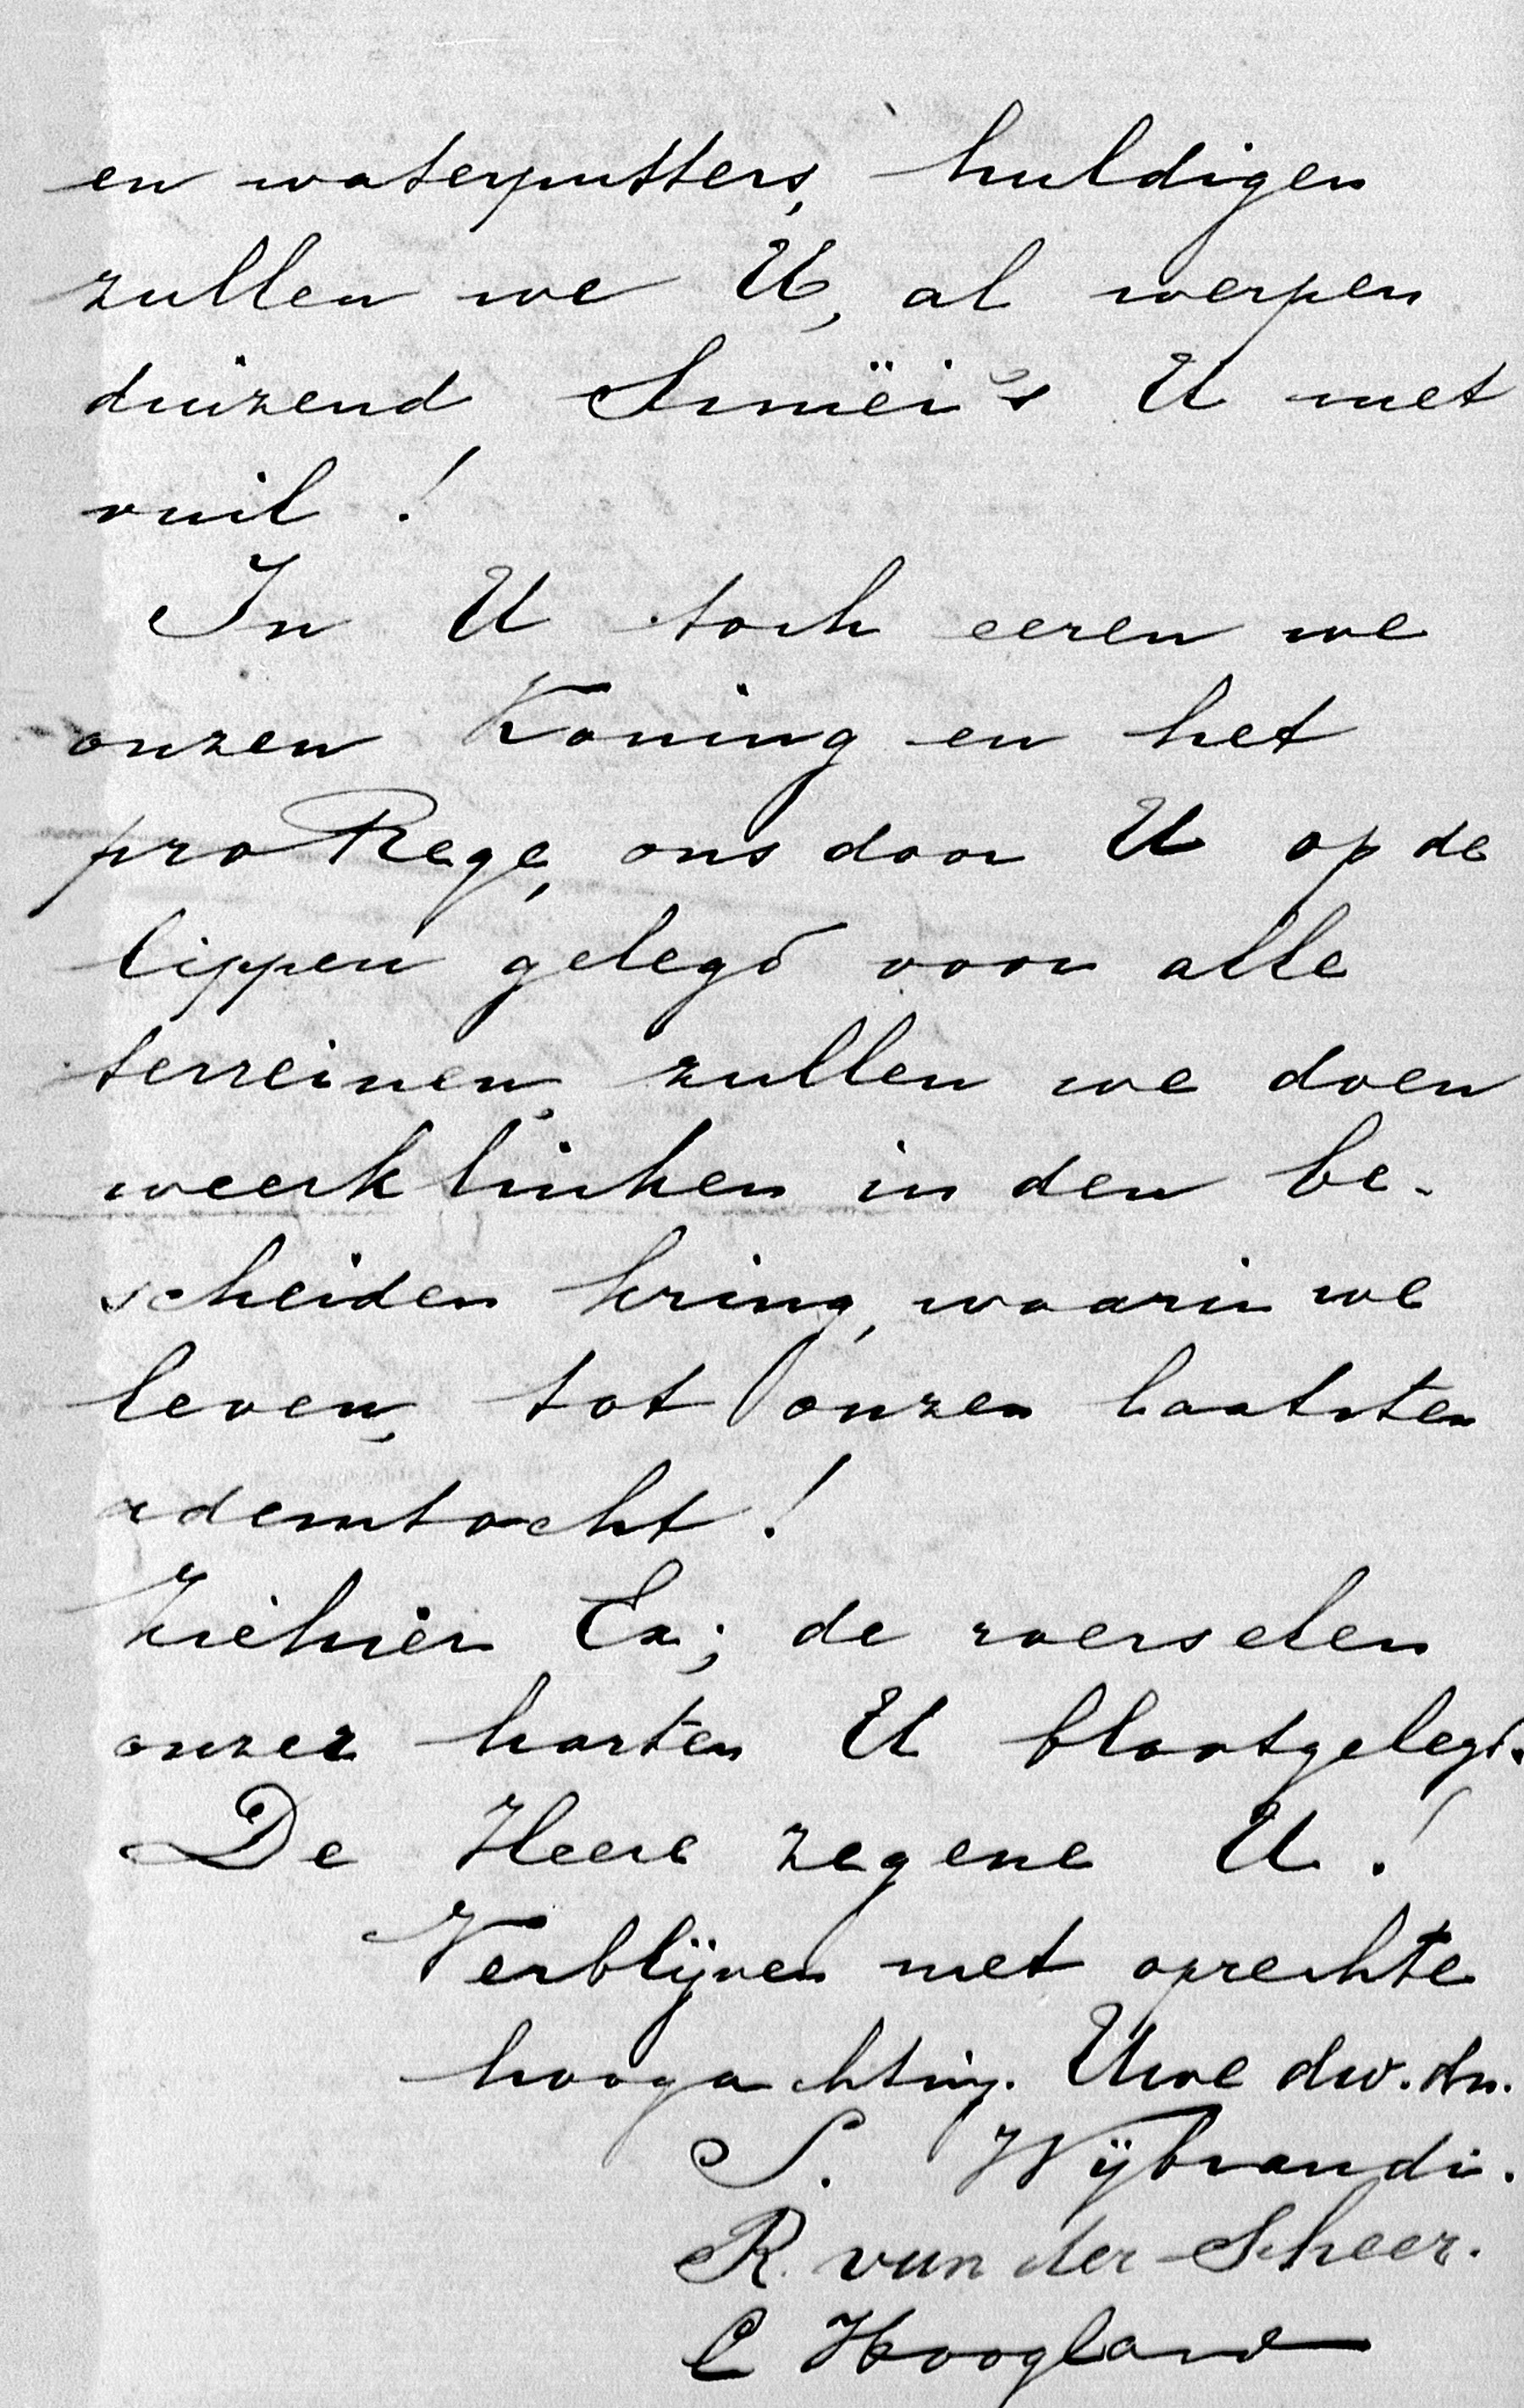 en waterputters, huldigen
zullen we U, al werpen
duizend Simëi's U met
vuil!
In U toch eeren we
onzen Koning en het
pro Rege, ons door U op de
lippen gelegd voor alle
terreinen, zullen we doen
weerklinken in den be-
scheiden kring, waarin we
leven, tot onzen laatsten
ademtocht!
Ziehier Ex; de roerselen
onzer harten U blootgelegd.
De Heere zegene U!
Verblijven met oprechte
hoogachting. Uwe dw. dn.
S. Wijbrandi.
R. van der Scheer.
C Hoogland